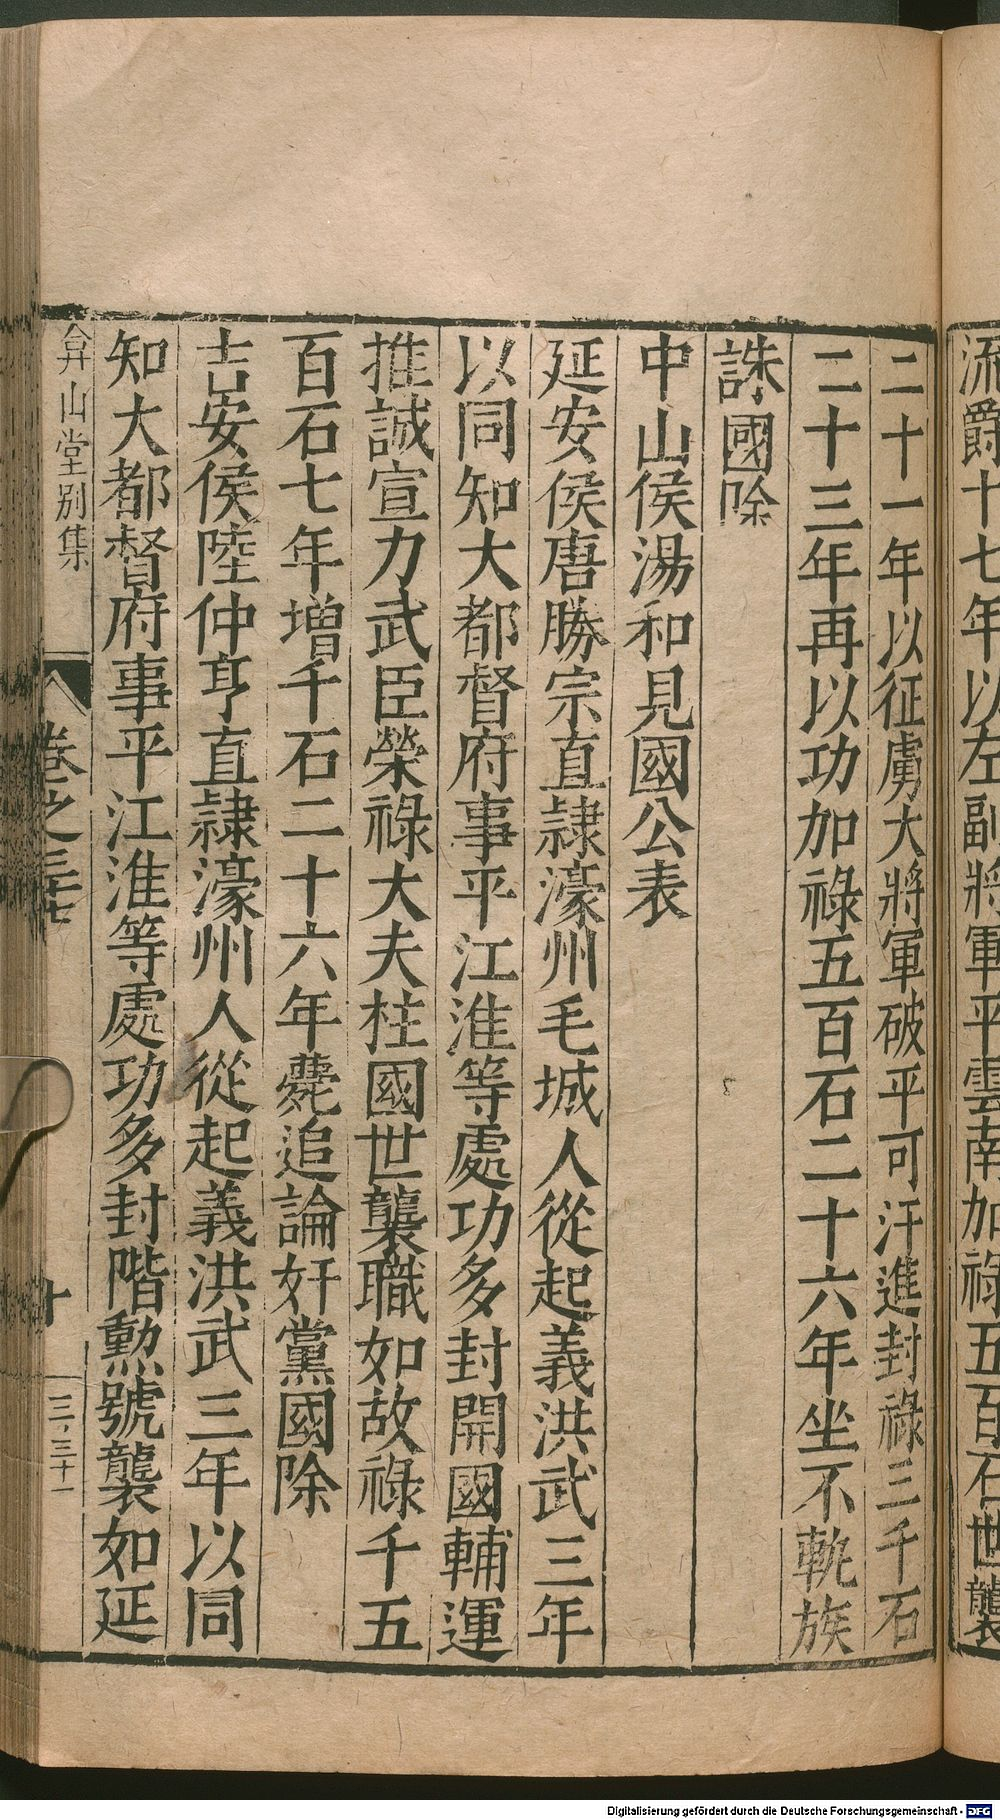 流爵十七年以左副將軍平雲南加祿五百石世襲
二十一年以征虜大將軍破平可汗進封祿三千石
二十三年再以功加祿五百石二十六年坐不軌族
誅國除
中山侯湯和見國公表
延安侯唐勝宗直隸濠州毛城人從起義洪武三年
以同知大都督府事平江淮等處功多封開國輔運
推誠宣力武臣榮祿大夫柱國世襲職如故祿千五
百石七年增千石二十六年薨追論奸黨國除
吉安侯陸仲亨直隸濠州人從起義洪武三年以同
知大都督府事平江淮等處功多封階勳號襲如延
弇山堂別集
卷之三十七
十
三,三十一
Digitalisierung gefördert durch die Deutsche Forschungsgemeinschaft - DFG